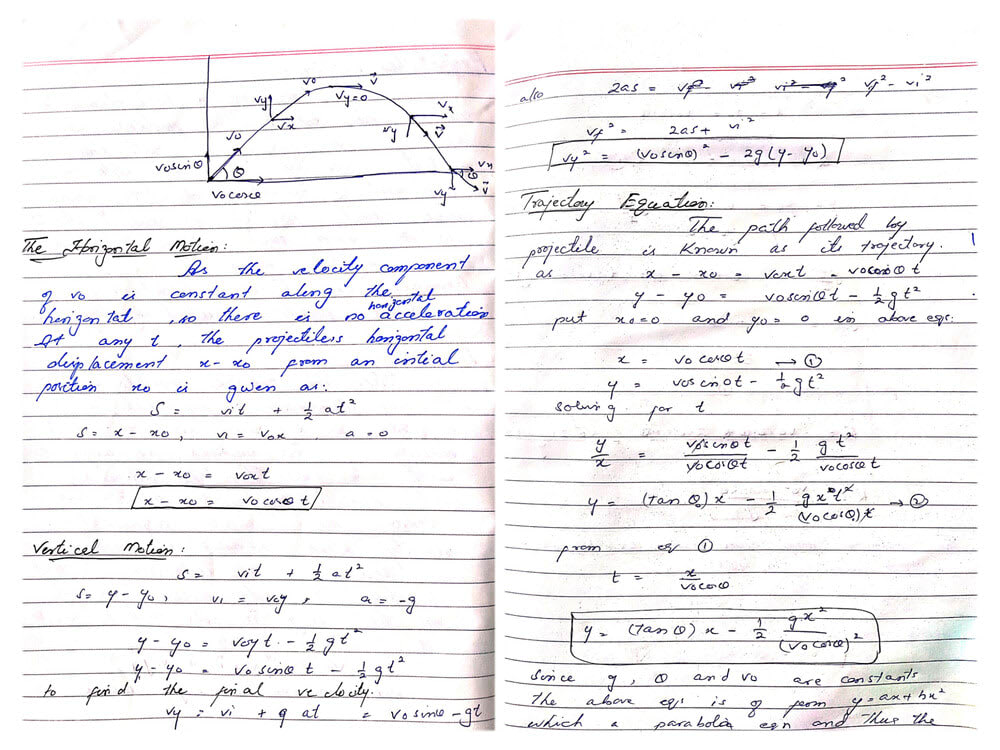 v0
v⃗
vy=0
vy
vx
v0
v0sinθ
θ
v0cosθ
vx
vy
v⃗
vx
θ
vy
v⃗
The Horizontal Motion:
As the velocity component
of v0 is constant along the
horizontal, so there is no horizontal acceleration
At any t, the projectiless horizontal
displacement x - x0 from an intial
position x0 is given as:
S = vit + 1/2 at²
S = x - x0, vi = vox a = 0
x - x0 = voxt
x - x0 = v0cosθt
Vertical Motion:
S = vit + 1/2 at²
S = y - y0, vi = voy, a = -g
y - y0 = voyt - 1/2 gt²
y - y0 = v0sinθ t - 1/2 gt²
to find the final velocity.
vy = vi + at = v0sinθ - gt
also 2as = vf² - vi²
vf² = 2as + vi²
vy² = (v0sinθ)² - 2g(y - y0)
Trajectory Equation:
The path followed by
projectile is known as its trojectory.
as x - x0 = voxt = v0cosθt
y - y0 = v0sinθt - 1/2 gt²
put x0=0 and y0=0 in above eqs:
x = v0cosθt → ①
y = v0sinθt - 1/2 gt²
solving for t
y/x = v0sinθt/v0cosθt - 1/2 gt²/v0cosθt
y = (tanθ)x - 1/2 gxt²/(v0cosθ)t → ②
from eq ①
t = x/v0cosθ
y = (tanθ)x - 1/2 gx²/(v0cosθ)²
Since g, θ and v0 are constants
The above eqs is of form y = ax + bx²
which a parabola eqn and thus the